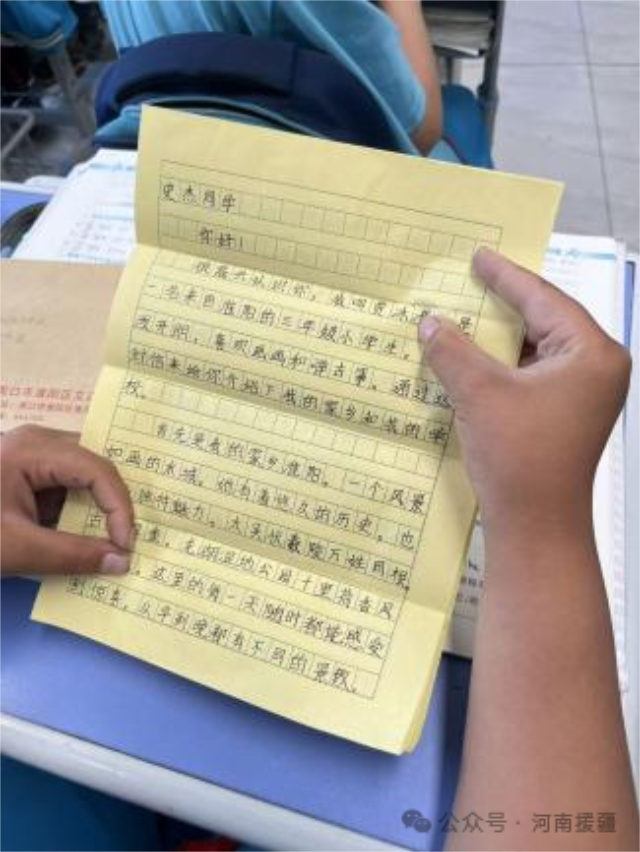 史杰同学
你好！
很高兴认识你，我叫贾沐 是
一名来自淮阳的三年级小学生。
活开朗，喜欢画画和弹古筝。通过这
封信来给你介绍下我的家乡和我的学
校。
首先是我的家乡淮阳。一个风景
如画的水城，她有着悠久的历史。也
独特魅力。太昊伏羲陵万姓同根，
龙湖湿地公园十里荷香风
。这里的每一天随时都能感受
到惊喜，从早到晚都有不同的景致。
周口市淮阳区文
公众号·河南援疆